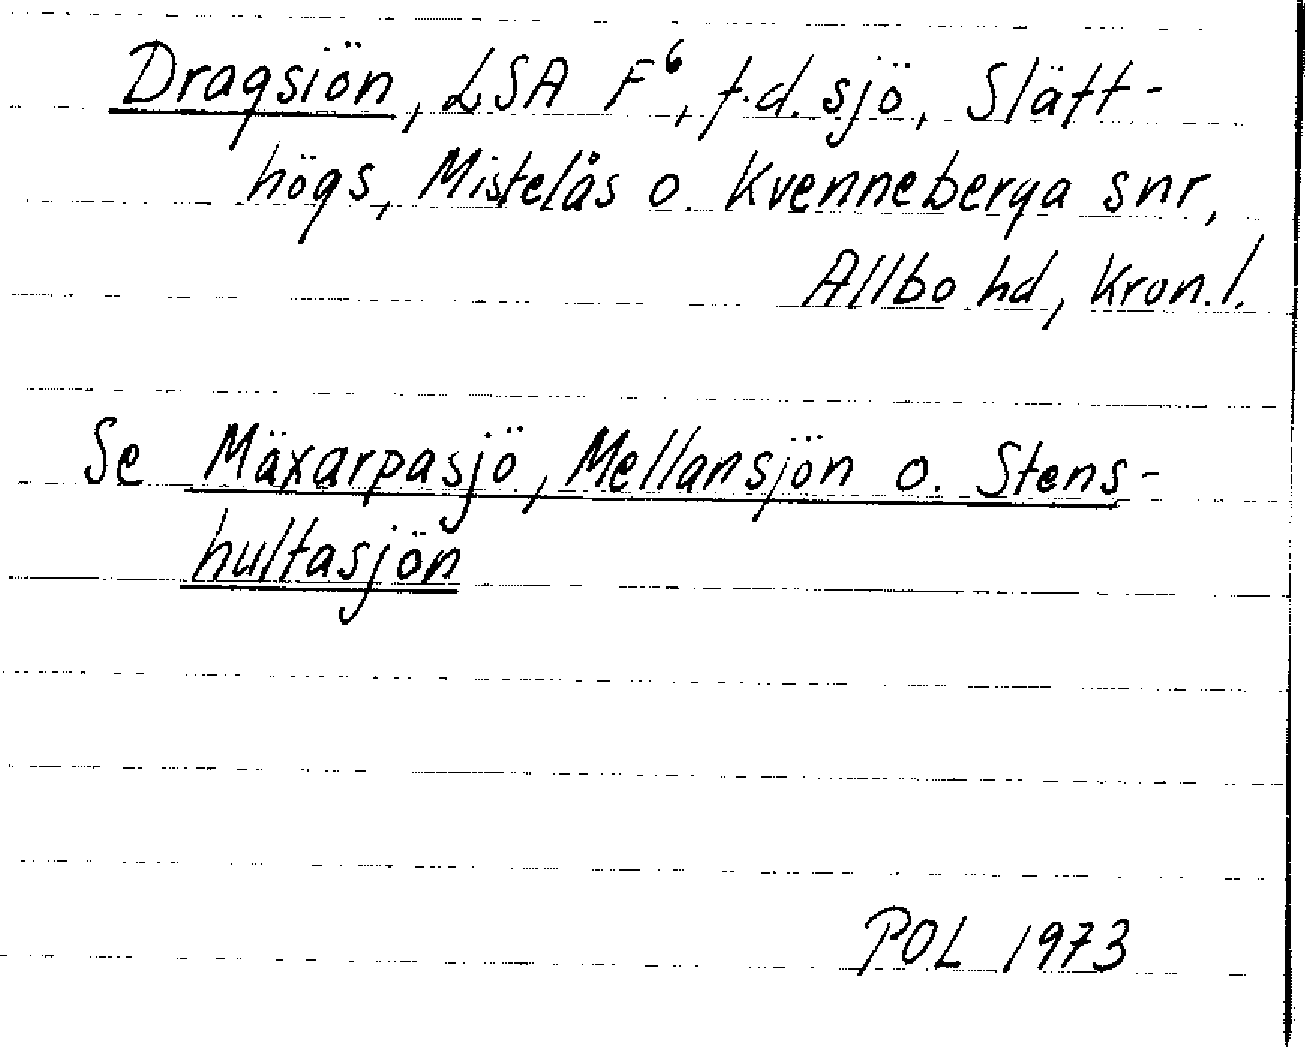 Dragsjön, LSA F⁶, f.d. sjö, Slätt-
högs, Mistelås o. Kvenneberga snr,
Allbo hd, Kron.l.
Se Mäxarpasjö, Mellansjön o. Stens-
hultasjön
POL 1973